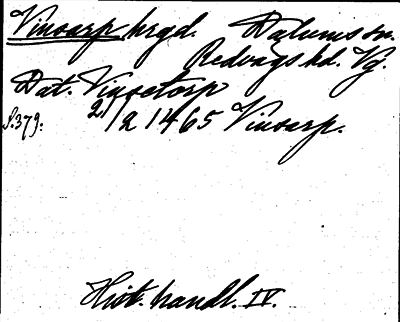 Vinsarp hrgd. Dalums sn.
Redvägs hd. Vg.
Dat. Vinsetorp
s. 379. 2/2 1465 Vinsarp.
Hist. handl. IV.